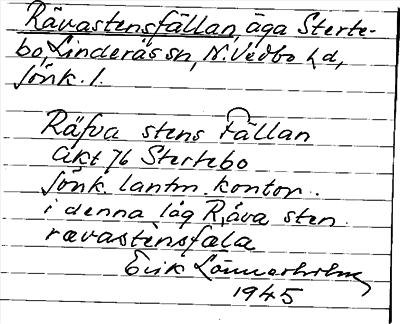 Rävastensfällan, äga Sterte-
bo, Linderås sn, N. Vedbo hd,
Jönk. l.
Räfva stens Fällan
akt 76 Stertebo
Jönk. lantm. kontor.
i denna låg Räva sten
rævastènsfæla
Erik Lönnerholm
1945